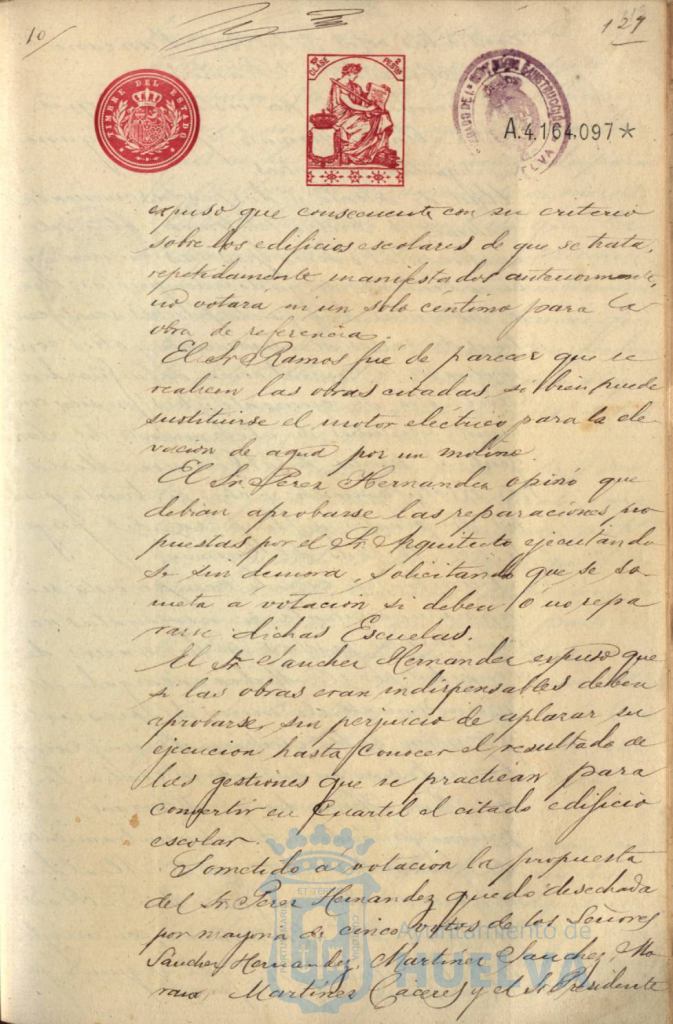 10/
127
TIMBRE DEL ESTADO
CLASE PESE
A.4.164,097*
expuso que consecuente con su criterio
sobre los edificios escolares de que se trata,
repetidamente manifestados anteriormente,
no votara ni un solo céntimo para la
obra de referencia.
El Sr. Ramos fué de parecer que se
realicen las obras citadas, si bien puede
sustituirse el motor eléctrico para la ele-
vacion de agua por un molino.
El Sr. Perez Hernandez opinó que
debian aprobarse las reparaciones pro
puestas por el Sr. Arquitecto ejecutando
se sin demora, solicitando que se so-
meta á votacion si deben ó no repa
rarse dichas Escuelas.
El Sr. Sanchez Hernandez expuso que
si las obras eran indispensables deben
aprobarse, sin perjuicio de aplazar su
ejecucion hasta conocer el resultado de
las gestiones que se practican para
convertir en Cuartel el citado edificio
escolar.
Sometido á votacion la propuesta
del Sr. Perez Hernandez quedó desechada
por mayoria de cinco votos de los Señores
Sanchez Hernandez, Martinez Sanchez, Mo-
rano, Martinez Caceres y el Sr. Presidente
Ayuntamiento de
HUELVA